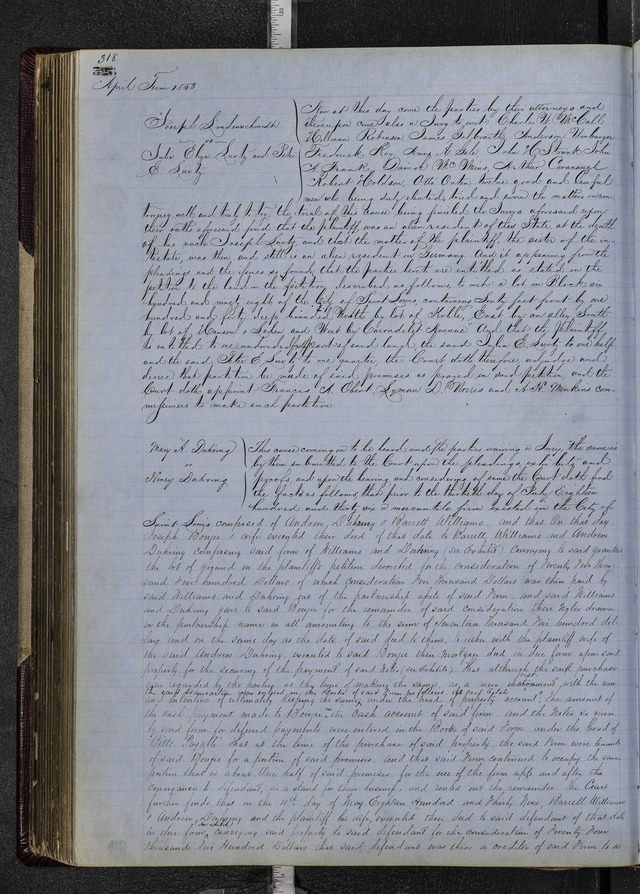 318
April Term 1853
Joseph Lindenschmidt
vs
Julia Eliza Lurty and Peter
E. Lurty
Now at this day come the parties by their attorneys and
thereupon came also a Jury to wit Charles W McCall
Hillman Robinson James Galbreath Anderson
Frederick Amey A John C Strode John
A Frank Daniel McMains, Arthur Cavanaugh
Robert Hodson, Otto twelve good and lawful
men who being duly elected, tried and sworn the matters in con-
troversy well and truly to try, the trial of this cause being finished the Jurors aforesaid upon
their oath aforesaid find that the plaintiff was an alien resident of this State at the death
of his uncle Joseph Lurty and that the mother of the plaintiff, the sister of the in-
testate, was then and still is an alien resident in Germany. And it appearing from the
pleadings and the issues so found, that the parties hereto are entitled as stated in the
petition to the land in the petition described as follows, to wit: a lot in Block six
hundred and ninety eight of the City of Saint Louis, containing Sixty feet front by one
hundred and fifty deep bounded North by lot of Kohler, East by an alley South
by lot of Hansen & and West by Carondelet Avenue And that the Plaintiff
is entitled to one undivided part of said land, the said Julia E. Lurty to one half
and the said Peter E Lurty to one quarter the Court doth therefore adjudge and
decree that partition be made of said premises as prayed in said petition, and the
Court doth appoint Francis A Obert, Lyman D. Norris and A H Menkens com-
missioners to make such partition
Mary A. Duhring
vs
Henry Duhring
This cause coming on to be heard and the parties waiving a Jury, the cause is
by them submitted to the Court upon the pleadings, exhibits and
proofs and upon the hearing and considering of same the Court doth find
the facts as follows that prior to the thirtieth day of July Eighteen
hundred and thirty six a mercantile firm existed in the City of
Saint Louis composed of Andrew Duhring & Barrett Williams and that On that day
Joseph Bouju & wife executed their deed of that date to Barrett Williams and Andrew
Duhring comprising said firm of Williams and Duhring (see Exhibit) Conveying to said grantees
the lot of ground in the plaintiffs petition described for the consideration of Twenty two Thou-
sand five hundred Dollars of which consideration five thousand Dollars was then paid by
said Williams and Duhring out of the partnership assets of said Firm, and said Williams
and Duhring gave to said Bouju for the remainder of said consideration their Notes drawn
in the partnership name in all amounting to the sum of Seventeen thousand five hundred dol-
lars and on the same day as the date of said deed to them, together with the plaintiff wife of
the said Andrew Duhring executed to said Bouju their mortgage deed in due form upon said
property for the securing of the payment of said Notes (see Exhibit). That although the said purchase
was regarded by the parties at the time of making the same, as a new investment with the view
the said transaction was entered in the Books of said Firm as follows the said Estate
and intention of ultimately keeping the same, under the head of property account. The amount of
the cash payment made to Bouju in the Cash account of said firm and the Notes so given
by said firm for deferred payments were entered in the Books of said Firm under the head of
"Bills Payable" that at the time of the purchase of said property the said Firm were tenants
of said Bouju for a portion of said premises, and that said Firm continued to occupy the same
portion that is about One half of said premises, for the use of the firm up to and after the
conveyance to defendant, as a stand for their business, and rented out the remainder. The Court
further finds that on the 10th day of May Eighteen Hundred and Thirty Nine, Barrett Williams
& Andrew Duhring and the plaintiff his wife, executed their deed to said defendant of that date
(see exhibit)
in due form conveying said property to said defendant for the consideration of Twenty Four
thousand Five Hundred Dollars that said defendant was then a creditor of said Firm to a